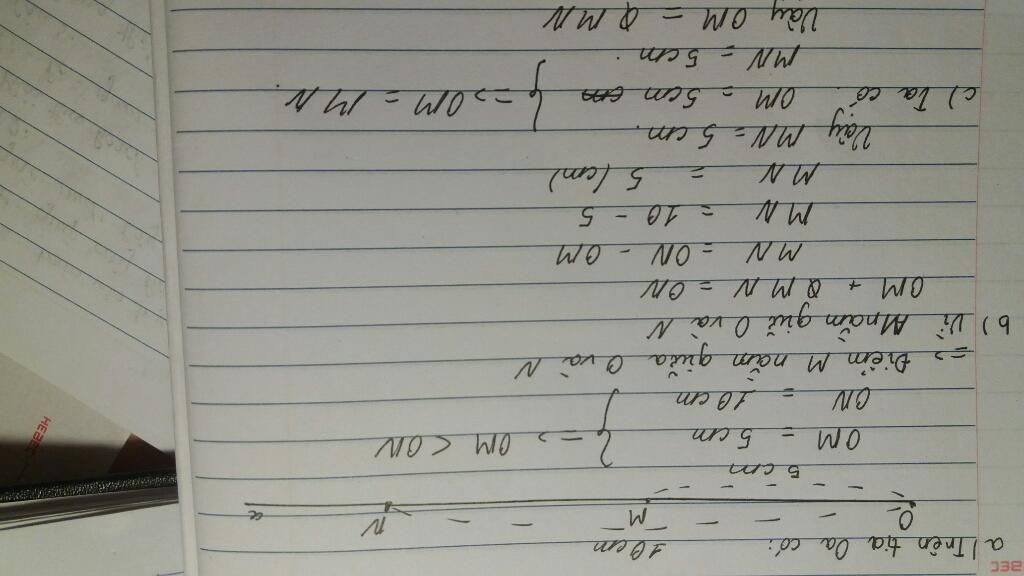 a) Trên tia Oa có:
10cm
O M N a
5cm
OM = 5cm
ON = 10cm } => OM < ON
=> Điểm M nằm giữa O và N
b) Vì M nằm giữ O và N
OM + MN = ON
MN = ON - OM
MN = 10 - 5
MN = 5 (cm)
Vậy MN = 5cm.
c) Ta có: OM = 5cm
MN = 5cm } => OM = MN.
Vậy OM = MN